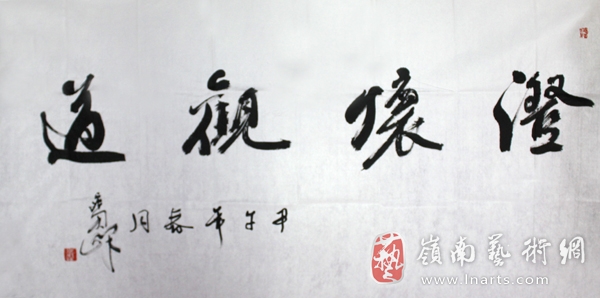 澄懷觀道
甲午年春月
藝
嶺南藝術網
www.lnarts.com